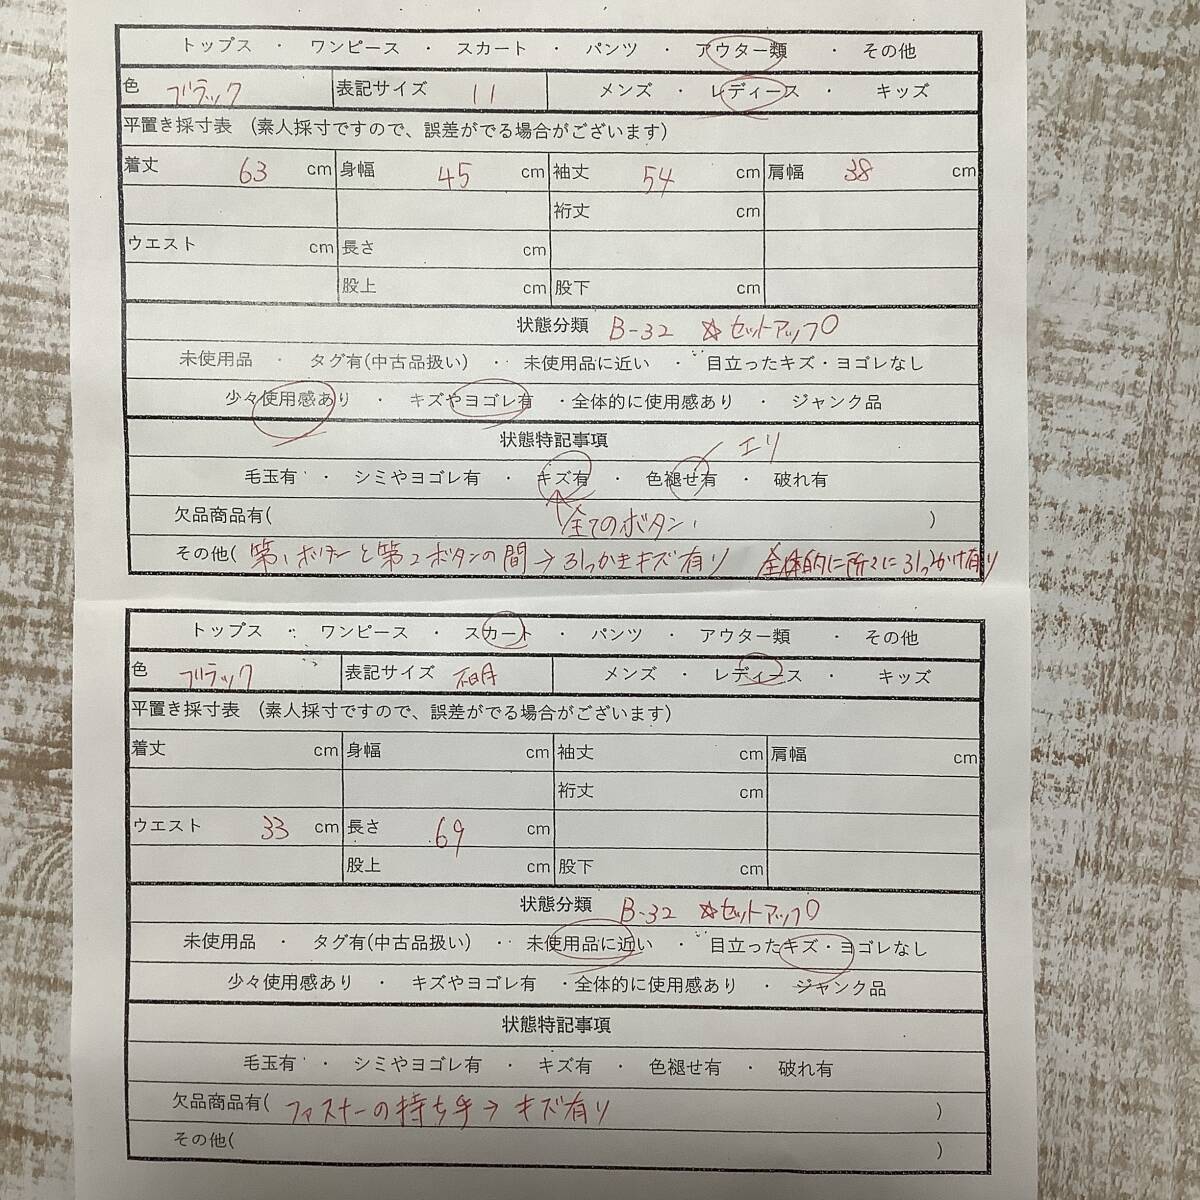 トップス ・ ワンピース ・ スカート ・ パンツ ・ アウター類 ・ その他
色 ブラック 表記サイズ 11 メンズ ・ レディース ・ キッズ
平置き採寸表 (素人採寸ですので、誤差がでる場合がございます)
着丈 63 cm 身幅 45 cm 袖丈 54 cm 肩幅 38 cm
裄丈 cm
ウエスト cm 長さ cm
股上 cm 股下 cm
状態分類 B-32 ☆セットアップ〇
未使用品 ・ タグ有(中古品扱い) ・ 未使用品に近い ・ 目立ったキズ・ヨゴレなし
少々使用感あり ・ キズやヨゴレ有 ・全体的に使用感あり ・ ジャンク品
状態特記事項 エリ
毛玉有 ・ シミやヨゴレ有 ・ キズ有 ・ 色褪せ有 ・ 破れ有
欠品商品有( 全てのボタン )
その他( 第1ボタンと第2ボタンの間→引っかきキズ有り 全体的に所々に引っかけ有り
トップス ・ ワンピース ・ スカート ・ パンツ ・ アウター類 ・ その他
色 ブラック 表記サイズ 不明 メンズ ・ レディース ・ キッズ
平置き採寸表 (素人採寸ですので、誤差がでる場合がございます)
着丈 cm 身幅 cm 袖丈 cm 肩幅 cm
裄丈 cm
ウエスト 33 cm 長さ 69 cm
股上 cm 股下 cm
状態分類 B-32 ☆セットアップ〇
未使用品 ・ タグ有(中古品扱い) ・ 未使用品に近い ・ 目立ったキズ・ヨゴレなし
少々使用感あり ・ キズやヨゴレ有 ・全体的に使用感あり ・ ジャンク品
状態特記事項
毛玉有 ・ シミやヨゴレ有 ・ キズ有 ・ 色褪せ有 ・ 破れ有
欠品商品有( ファスナーの持ち手→キズ有り )
その他( )